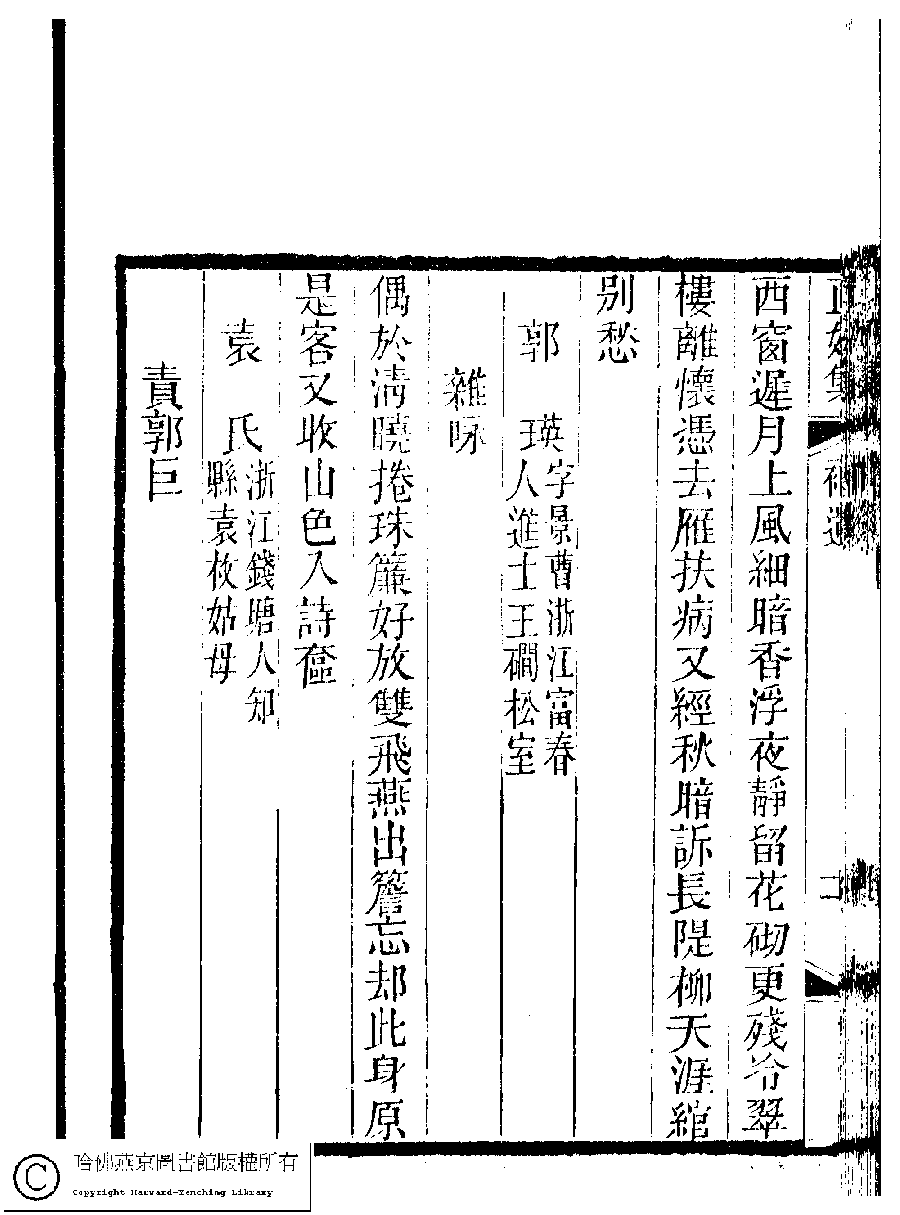 西窗遲月上風細暗香浮夜靜留花砌更殘冷翠
樓離懷憑去雁扶病又經秋暗訴長隄柳天涯綰
別愁
郭瑛字景曹浙江富春
人進士王磵松室
雜咏
偶於淸曉捲珠簾好放雙飛燕出簷忘却此身原
是客又收山色入詩奩
袁氏浙江錢塘人知
縣袁枚姑母
責郭巨
哈佛燕京圖書館版權所有
Copyright Harvard-Yenching Library